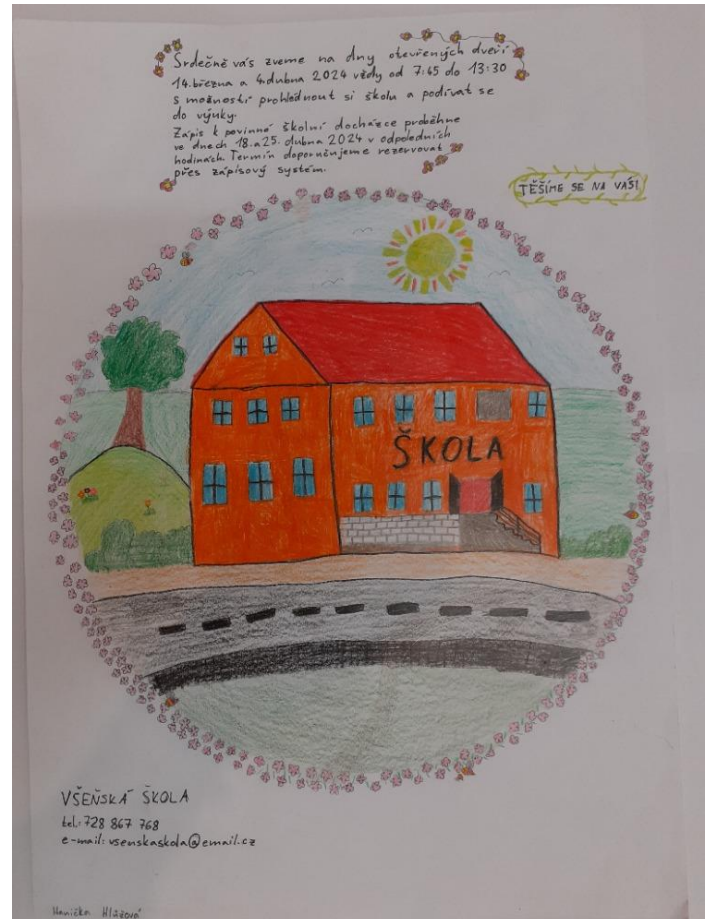 Srdečně vás zveme na dny otevřených dveří
14.března a 4.dubna 2024 vždy od 7:45 do 13:30
s možností prohlédnout si školu a podívat se
do výuky.
Zápis k povinné školní docházce proběhne
ve dnech 18.a 25. dubna 2024 v odpoledních
hodinách. Termín doporučujeme rezervovat
přes zápisový systém.
TĚŠÍME SE NA VÁS!
ŠKOLA
VŠEŇSKÁ ŠKOLA
tel: 728 867 768
e-mail: vsenskaskola@email.cz
Hanička